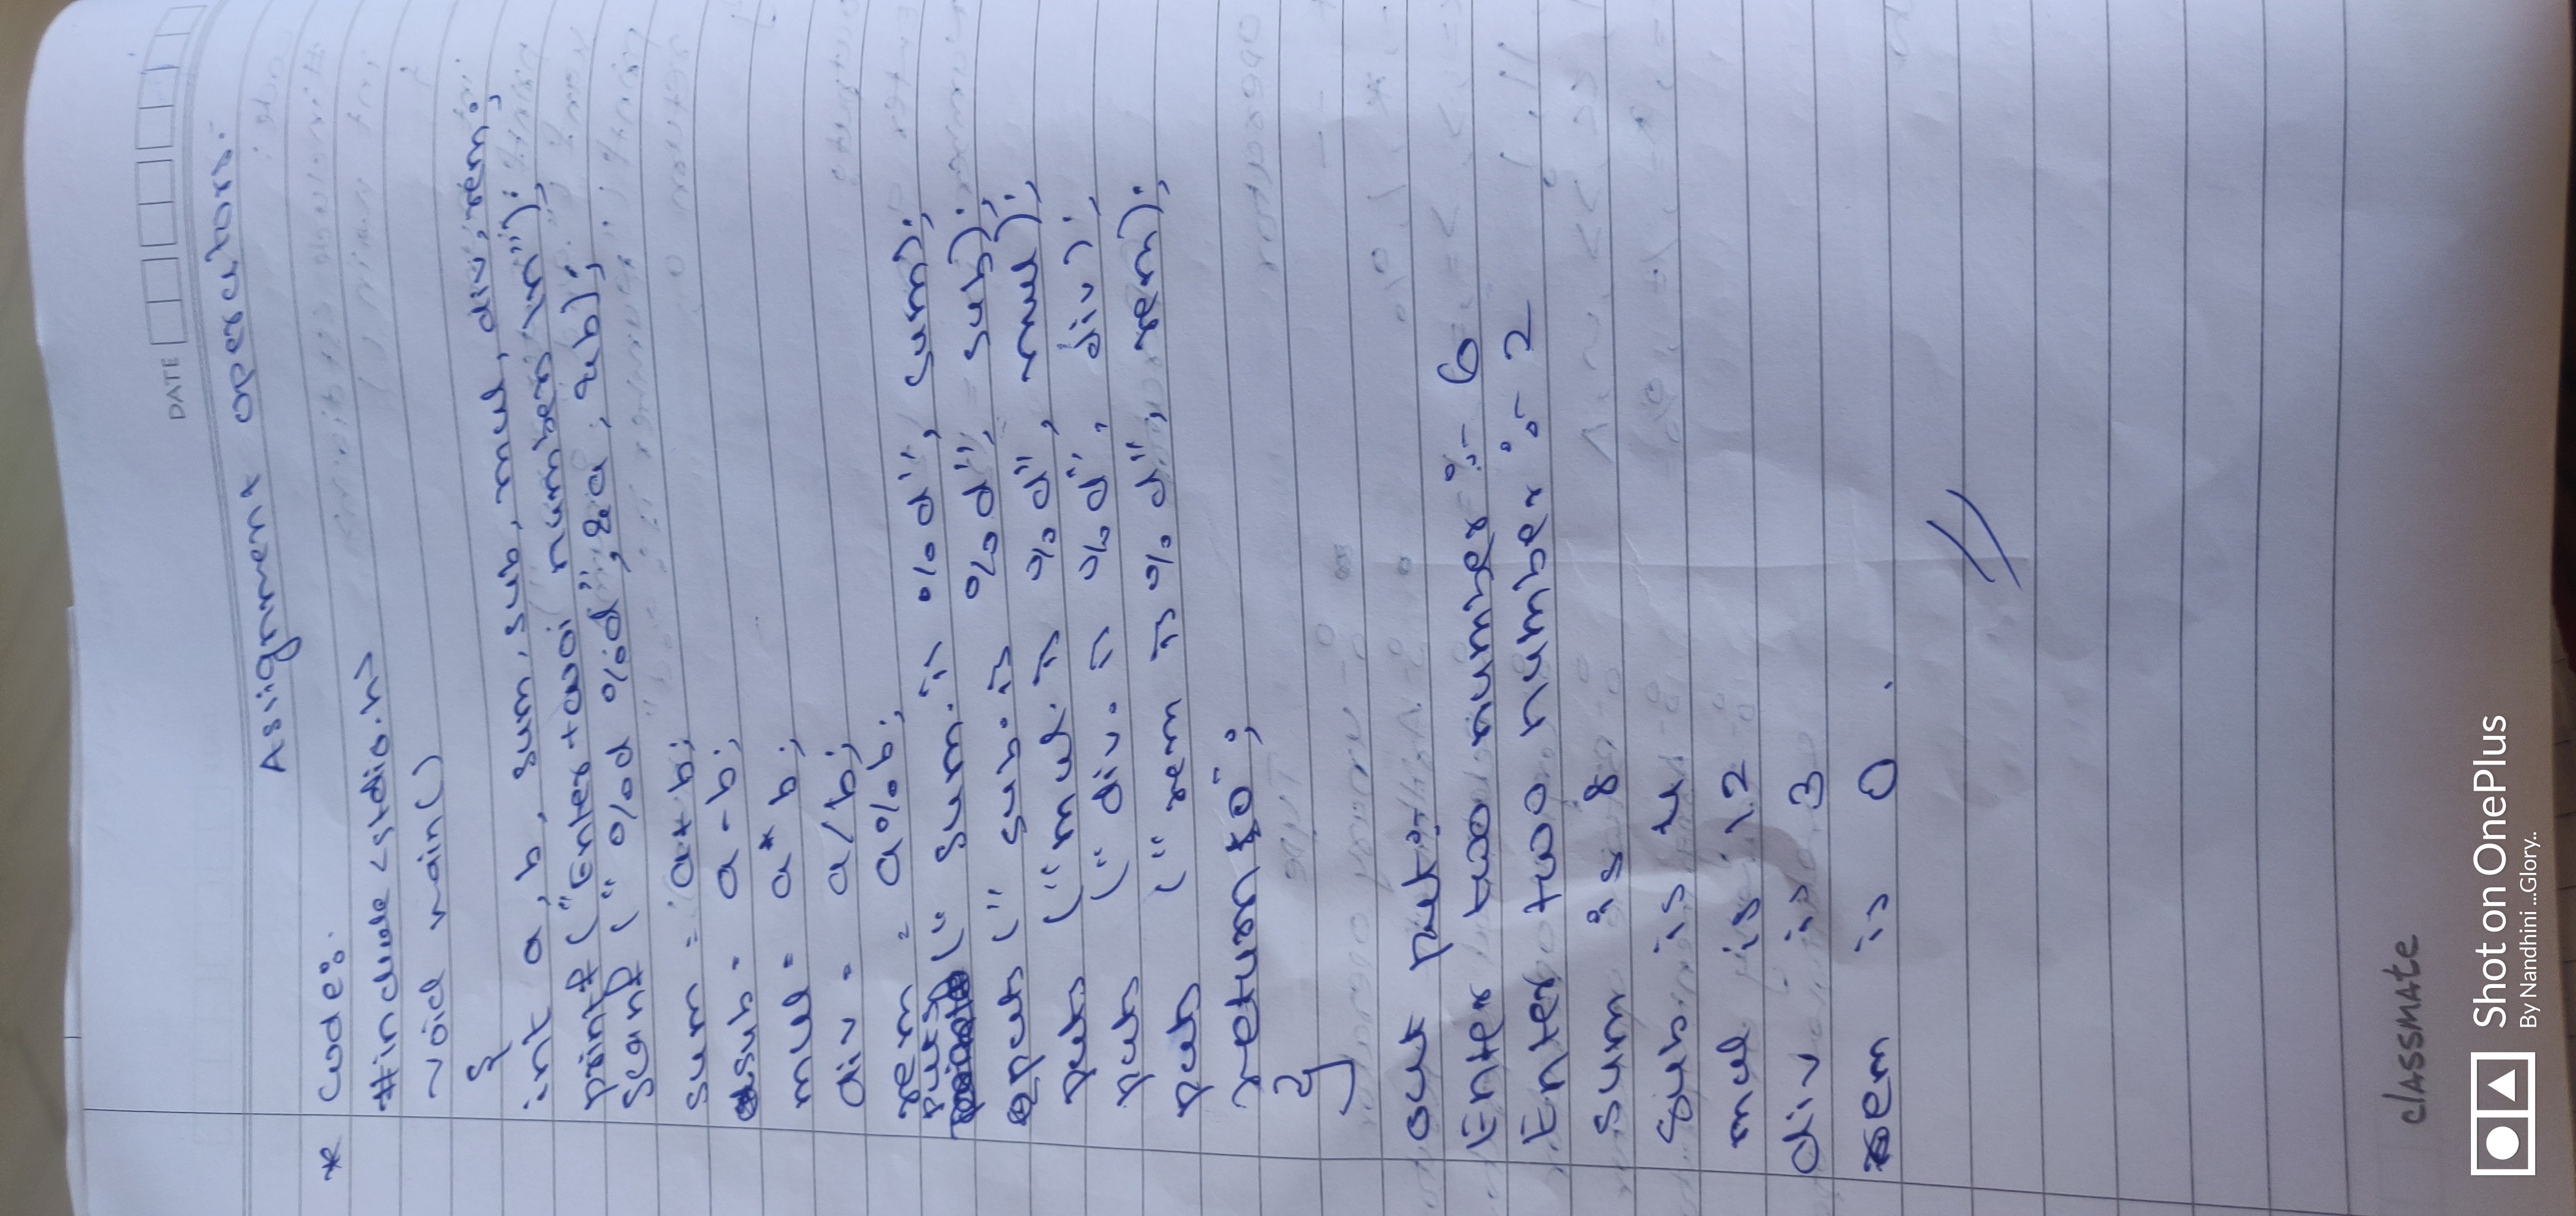 DATE
Assignment operators.
* Code:.
#include <stdio.h>
void main()
{
int a, b, sum, sub, mul, div, rem;
printf ("Enter two numbers \n");
scanf (" %d %d", &a, &b);
sum = a+b;
sub = a-b;
mul = a*b;
div = a/b;
rem = a%b;
puts (" sum. is %d", sum);
puts (" sub. is %d", sub);
puts ("mul. is %d", mul);
puts (" div. is %d", div);
puts (" rem is %d", rem);
return 0;
}
out put:-
Enter two number :- 6
Enter two number :- 2
sum is 8
sub is 4
mul is 12
div is 3
rem is 0.
classmate
Shot on OnePlus
By Nandhini ...Glory..